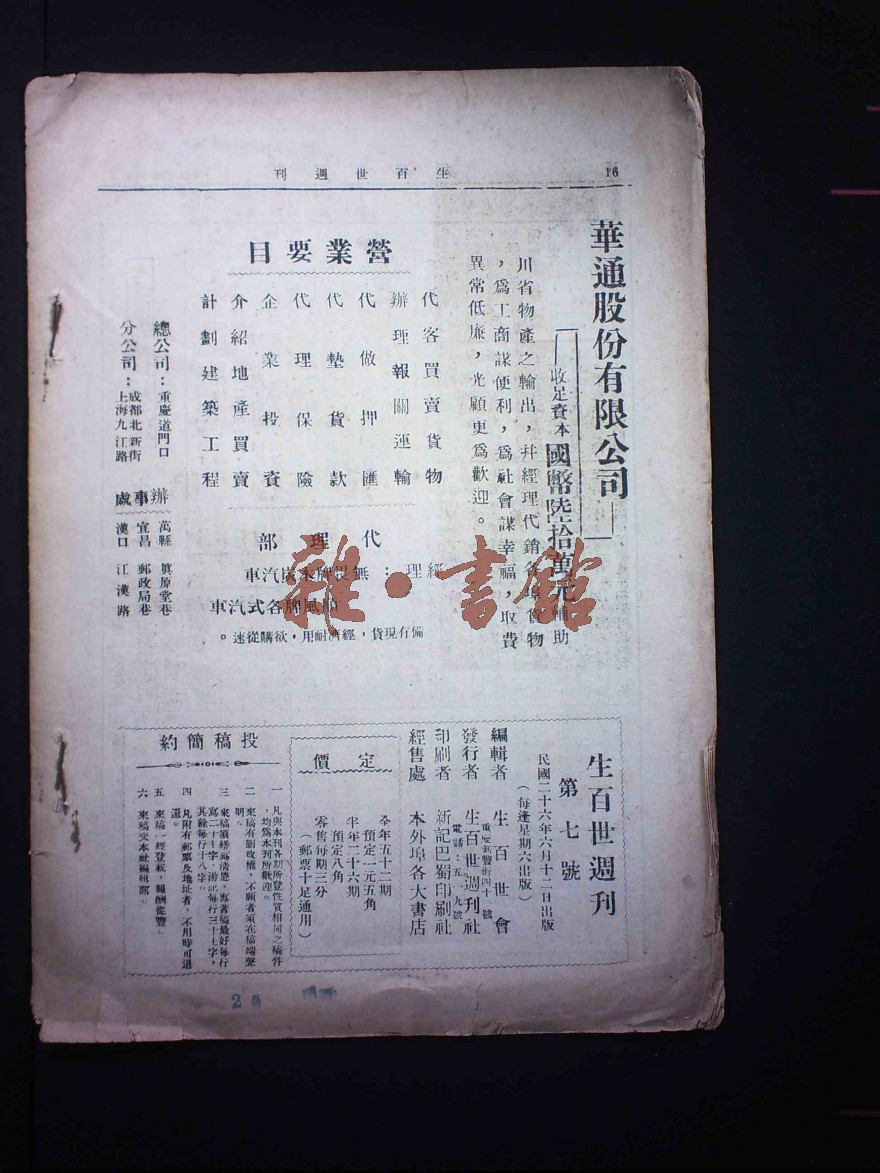 16
生百世週刊
華通股份有限公司
收足資本國幣陸拾萬元輔助
川省物產之輸出，幷經理代銷各埠貨物
，爲工商謀便利，爲社會謀幸福，取費
異常低廉，光顧更爲歡迎。
營業要目
代客買賣貨物
辦理報關運輸
代做押匯
代墊貨款
代理保險
企業投資
介紹地產買賣
計劃建築工程
代理部
經理：無畏牌木炭汽車
順風牌各式汽車
備有現貨，經濟耐用，欲購從速。
總公司：重慶道門口
分公司：成都北新街
上海九江路
辦事處
萬縣 眞原堂巷
宜昌 郵政局巷
漢口 江漢路
雜·書館
生百世週刊
第七號
民國二十六年六月十二日出版
（每逢星期六出版）
編輯者 生百世會
發行者 生百世週刊社
印刷者 新記巴蜀印刷社
經售處 本外埠各大書店
定價
全年五十二期
預定一元五角
半年二十六期
預定八角
零售每期三分
（郵票十足通用）
投稿簡約
一 凡與本刊各期所登性質相同之稿件
，均爲本刊所歡迎。
二 來稿有刪改權，不願者須在稿端聲
明。
三 來稿須繕寫清楚，專著稿最好每行
其餘每行十八字。
四 凡附有郵票及地址者，不用時可退
還。
五 來稿一經登載，報酬從豐。
六 來稿交本社編輯部。
2角